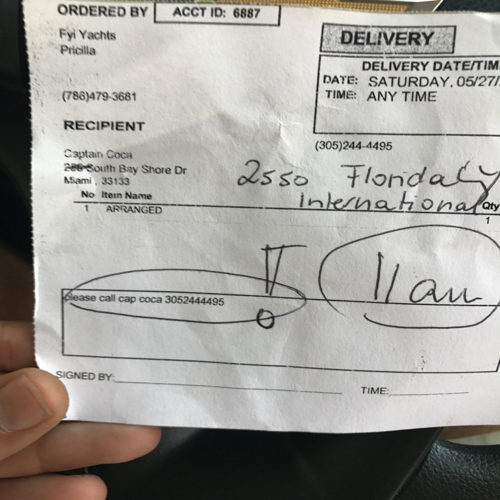 ORDERED BY ACCT ID: 6887
Fyi Yachts
Pricilla
(786)479-3681
DELIVERY
DELIVERY DATE/TIM
DATE: SATURDAY, 05/27/
TIME: ANY TIME
(305)244-4495
RECIPIENT
Captain Coca
South Bay Shore Dr
Miami , 33133
2550 Florida
International
No Item Name Qty
1 ARRANGED 1
11 am
please call cap coca 3052444495
SIGNED BY:
TIME: